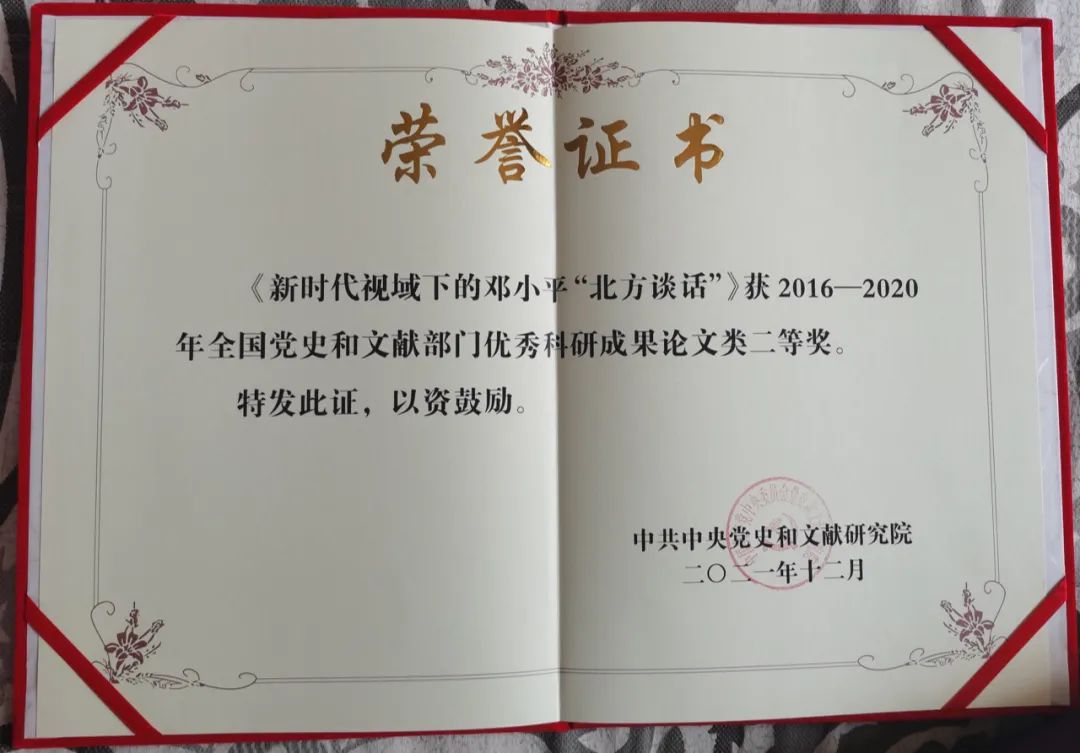 荣誉证书
《新时代视域下的邓小平“北方谈话”》获 2016—2020
年全国党史和文献部门优秀科研成果论文类二等奖。
特发此证，以资鼓励。
中共中央党史和文献研究院
二〇二一年十二月